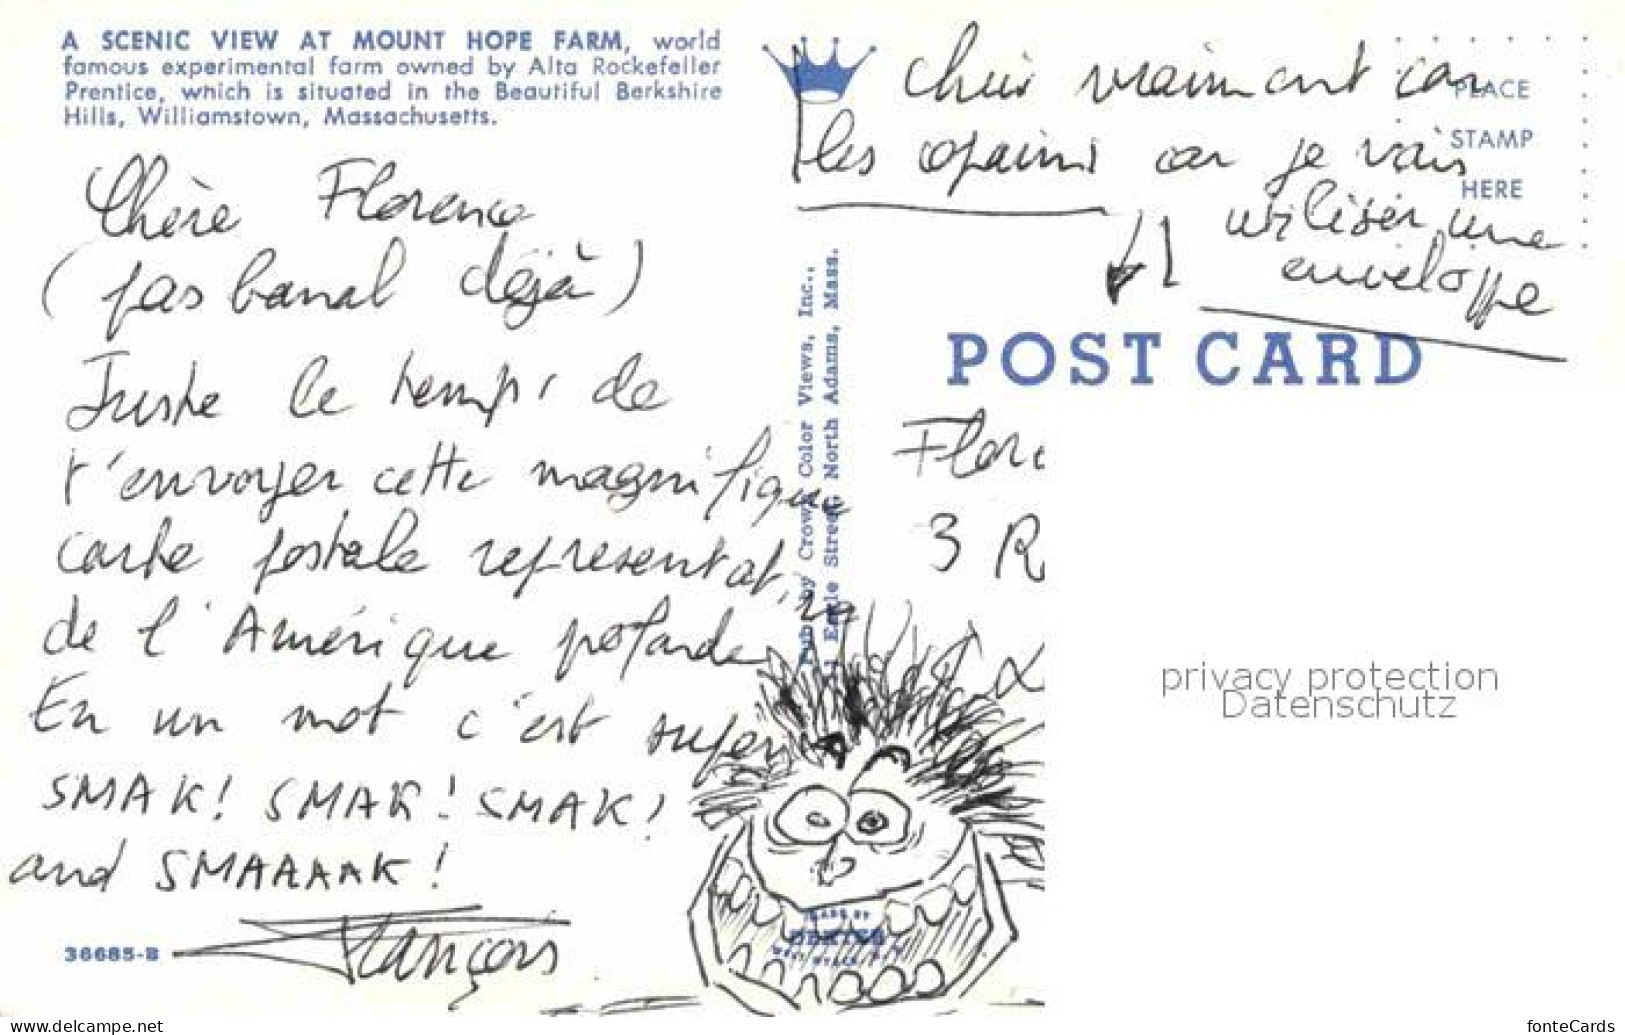 A SCENIC VIEW AT MOUNT HOPE FARM, world
famous experimental farm owned by Alta Rockefeller
Prentice, which is situated in the Beautiful Berkshire
Hills, Williamstown, Massachusetts.
Chère Florence
(pas banal déjà)
Juste le temps de
t'envoyer cette magnifique
carte postale représentative
de l'Amérique profonde
En un mot c'est super
SMAK! SMAK! SMAK!
and SMAAAAK!
François
36685-B
Chuis vraiment con
les copains car je vais
utiliser une
enveloppe
PLACE
STAMP
HERE
POST CARD
Pub. by Crown Color Views, Inc.,
Eagle Street, North Adams, Mass.
Flore
3 R
MADE BY
DEXTER
WEST NYACK, N.Y.
privacy protection
Datenschutz
www.delcampe.net
fonteCards